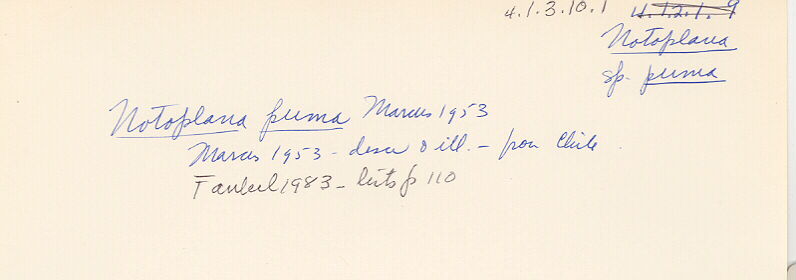 4.1.3.10.1 4.1.2.1.9
Notoplana
sp. puma
Notoplana puma Marcus 1953
Marcus 1953 - descr & ill. - from Chile
Faubel 1983 - lists p 110